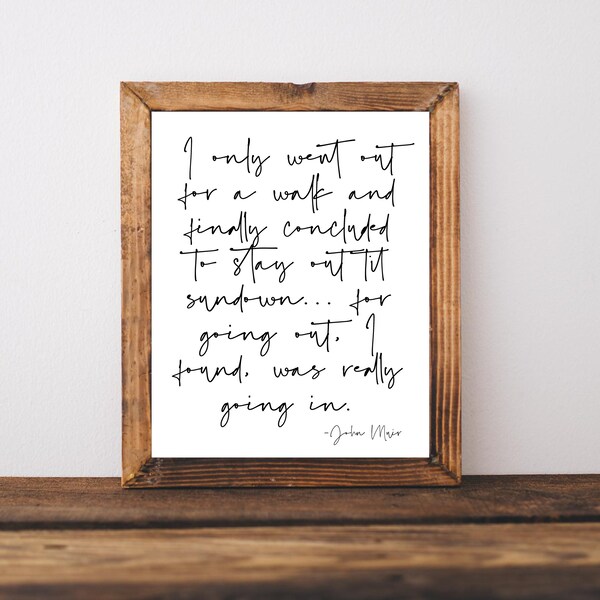 I only went out
for a walk and
finally concluded
to stay out 'til
sundown... for
going out, I
found, was really
going in.
-John Muir